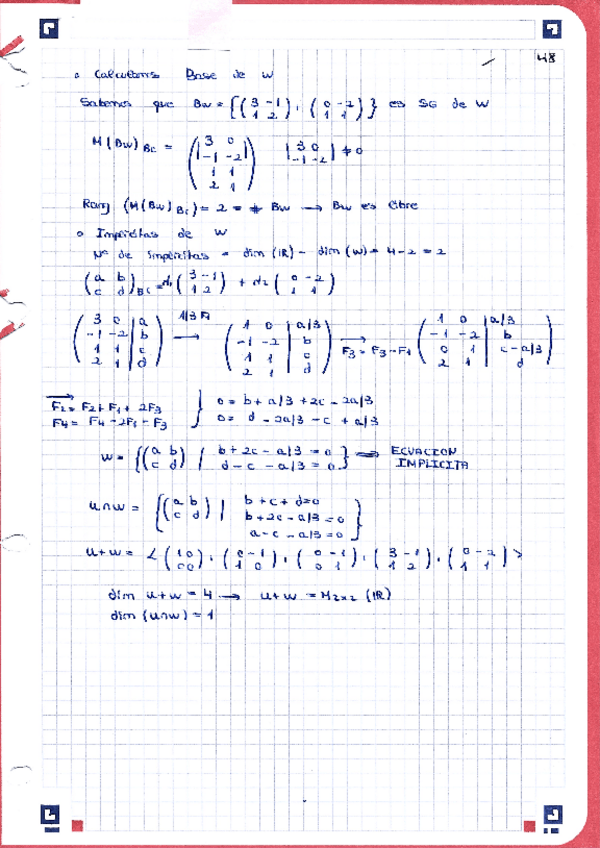 48
o Calculamos Base de W
Sabemos que Bw = {(3 -1; 1 2), (0 -2; 1 1)} es SG de W
M(Bw)Bc = (3 0; -1 -2; 1 1; 2 1) |3 0; -1 -2| ≠ 0
Rang (M(Bw)Bc) = 2 = # Bw → Bw es libre
o Implícitas de W
Nº de implícitas = dim (IR) - dim (W) = 4 - 2 = 2
(a b; c d)Bc = α1 (3 -1; 1 2) + α2 (0 -2; 1 1)
(3 0 | a; -1 -2 | b; 1 1 | c; 2 1 | d) 1/3 F1 → (1 0 | a/3; -1 -2 | b; 1 1 | c; 2 1 | d) → F3 = F3 - F1 (1 0 | a/3; -1 -2 | b; 0 1 | c - a/3; 2 1 | d)
→ F2 = F2 + F1 + 2F3 } 0 = b + a/3 + 2c - 2a/3
F4 = F4 - 2F1 - F3 } 0 = d - 2a/3 - c + a/3
W = {(a b; c d) / b + 2c - a/3 = 0; d - c - a/3 = 0} ⇒ ECUACION IMPLICITA
U∩W = {(a b; c d) | b + c + d = 0; b + 2c - a/3 = 0; a - c - a/3 = 0}
U + W = < (1 0; 0 0), (0 -1; 1 0), (0 -1; 0 1), (3 -1; 1 2), (0 -2; 1 1) >
dim U + W = 4 → U + W = M2x2 (IR)
dim (U∩W) = 1